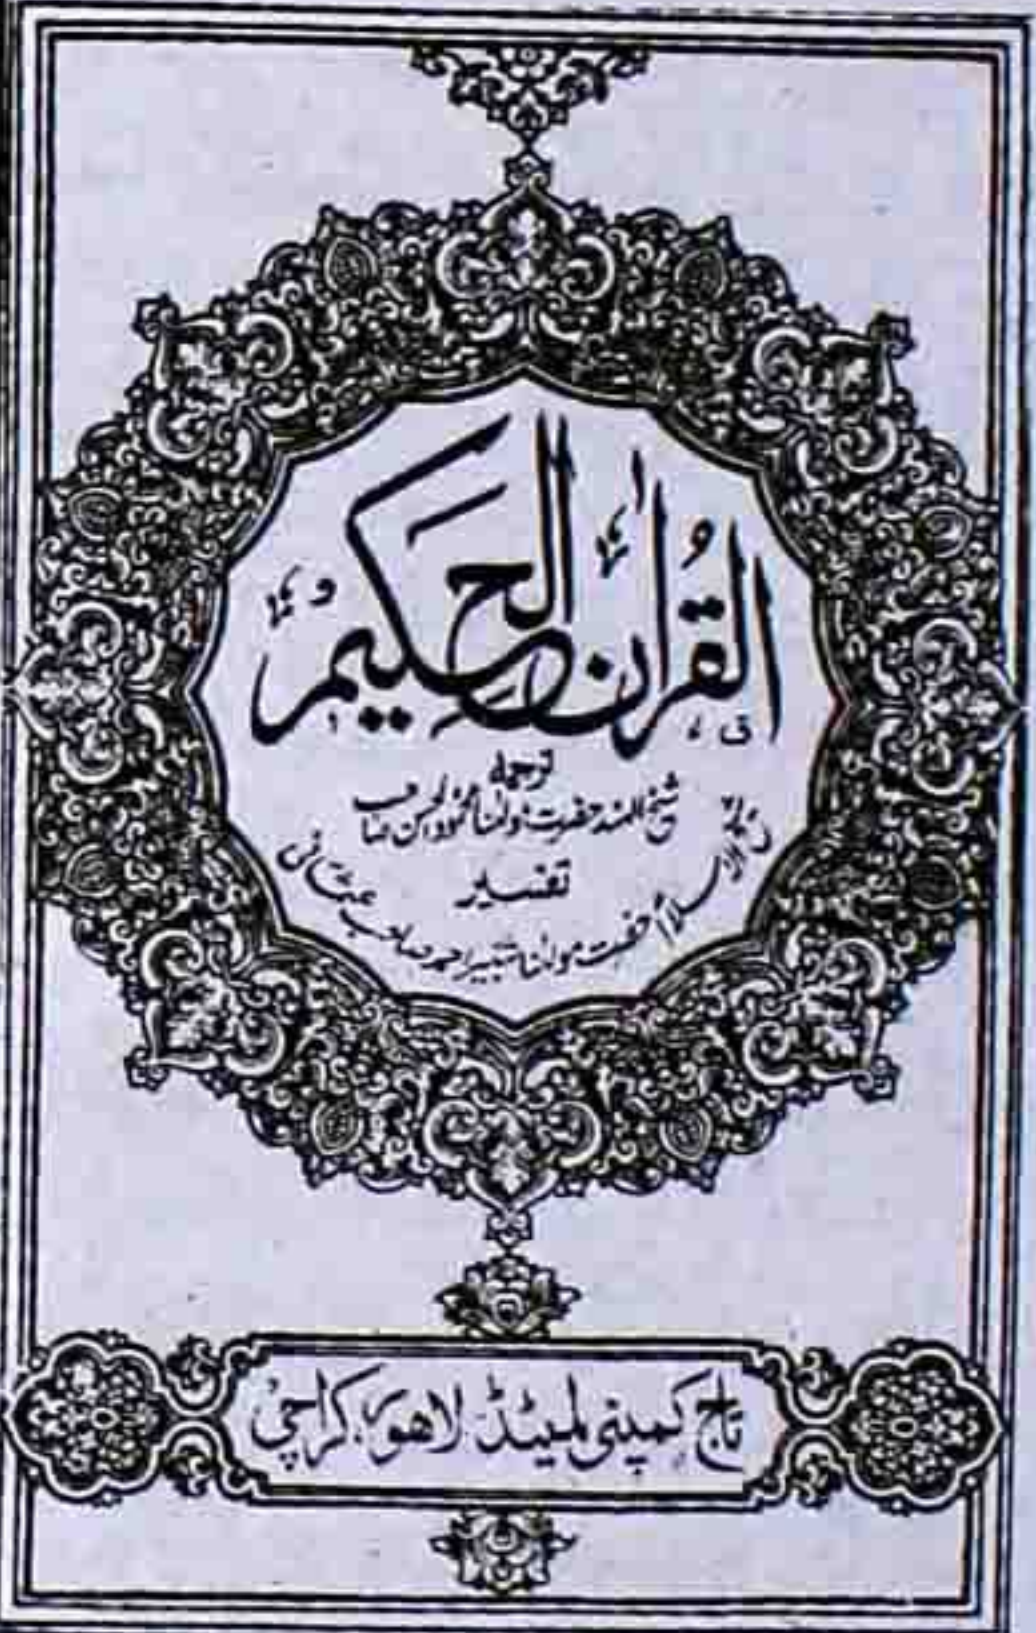 القرآن الحکیم
ترجمہ
شیخ الہند حضرت مولٰنا محمود الحسن صاحب
تفسیر
شیخ الاسلام حضرت مولٰنا شبیر احمد صاحب عثمانی
تاج کمپنی لمیٹڈ لاہور کراچی